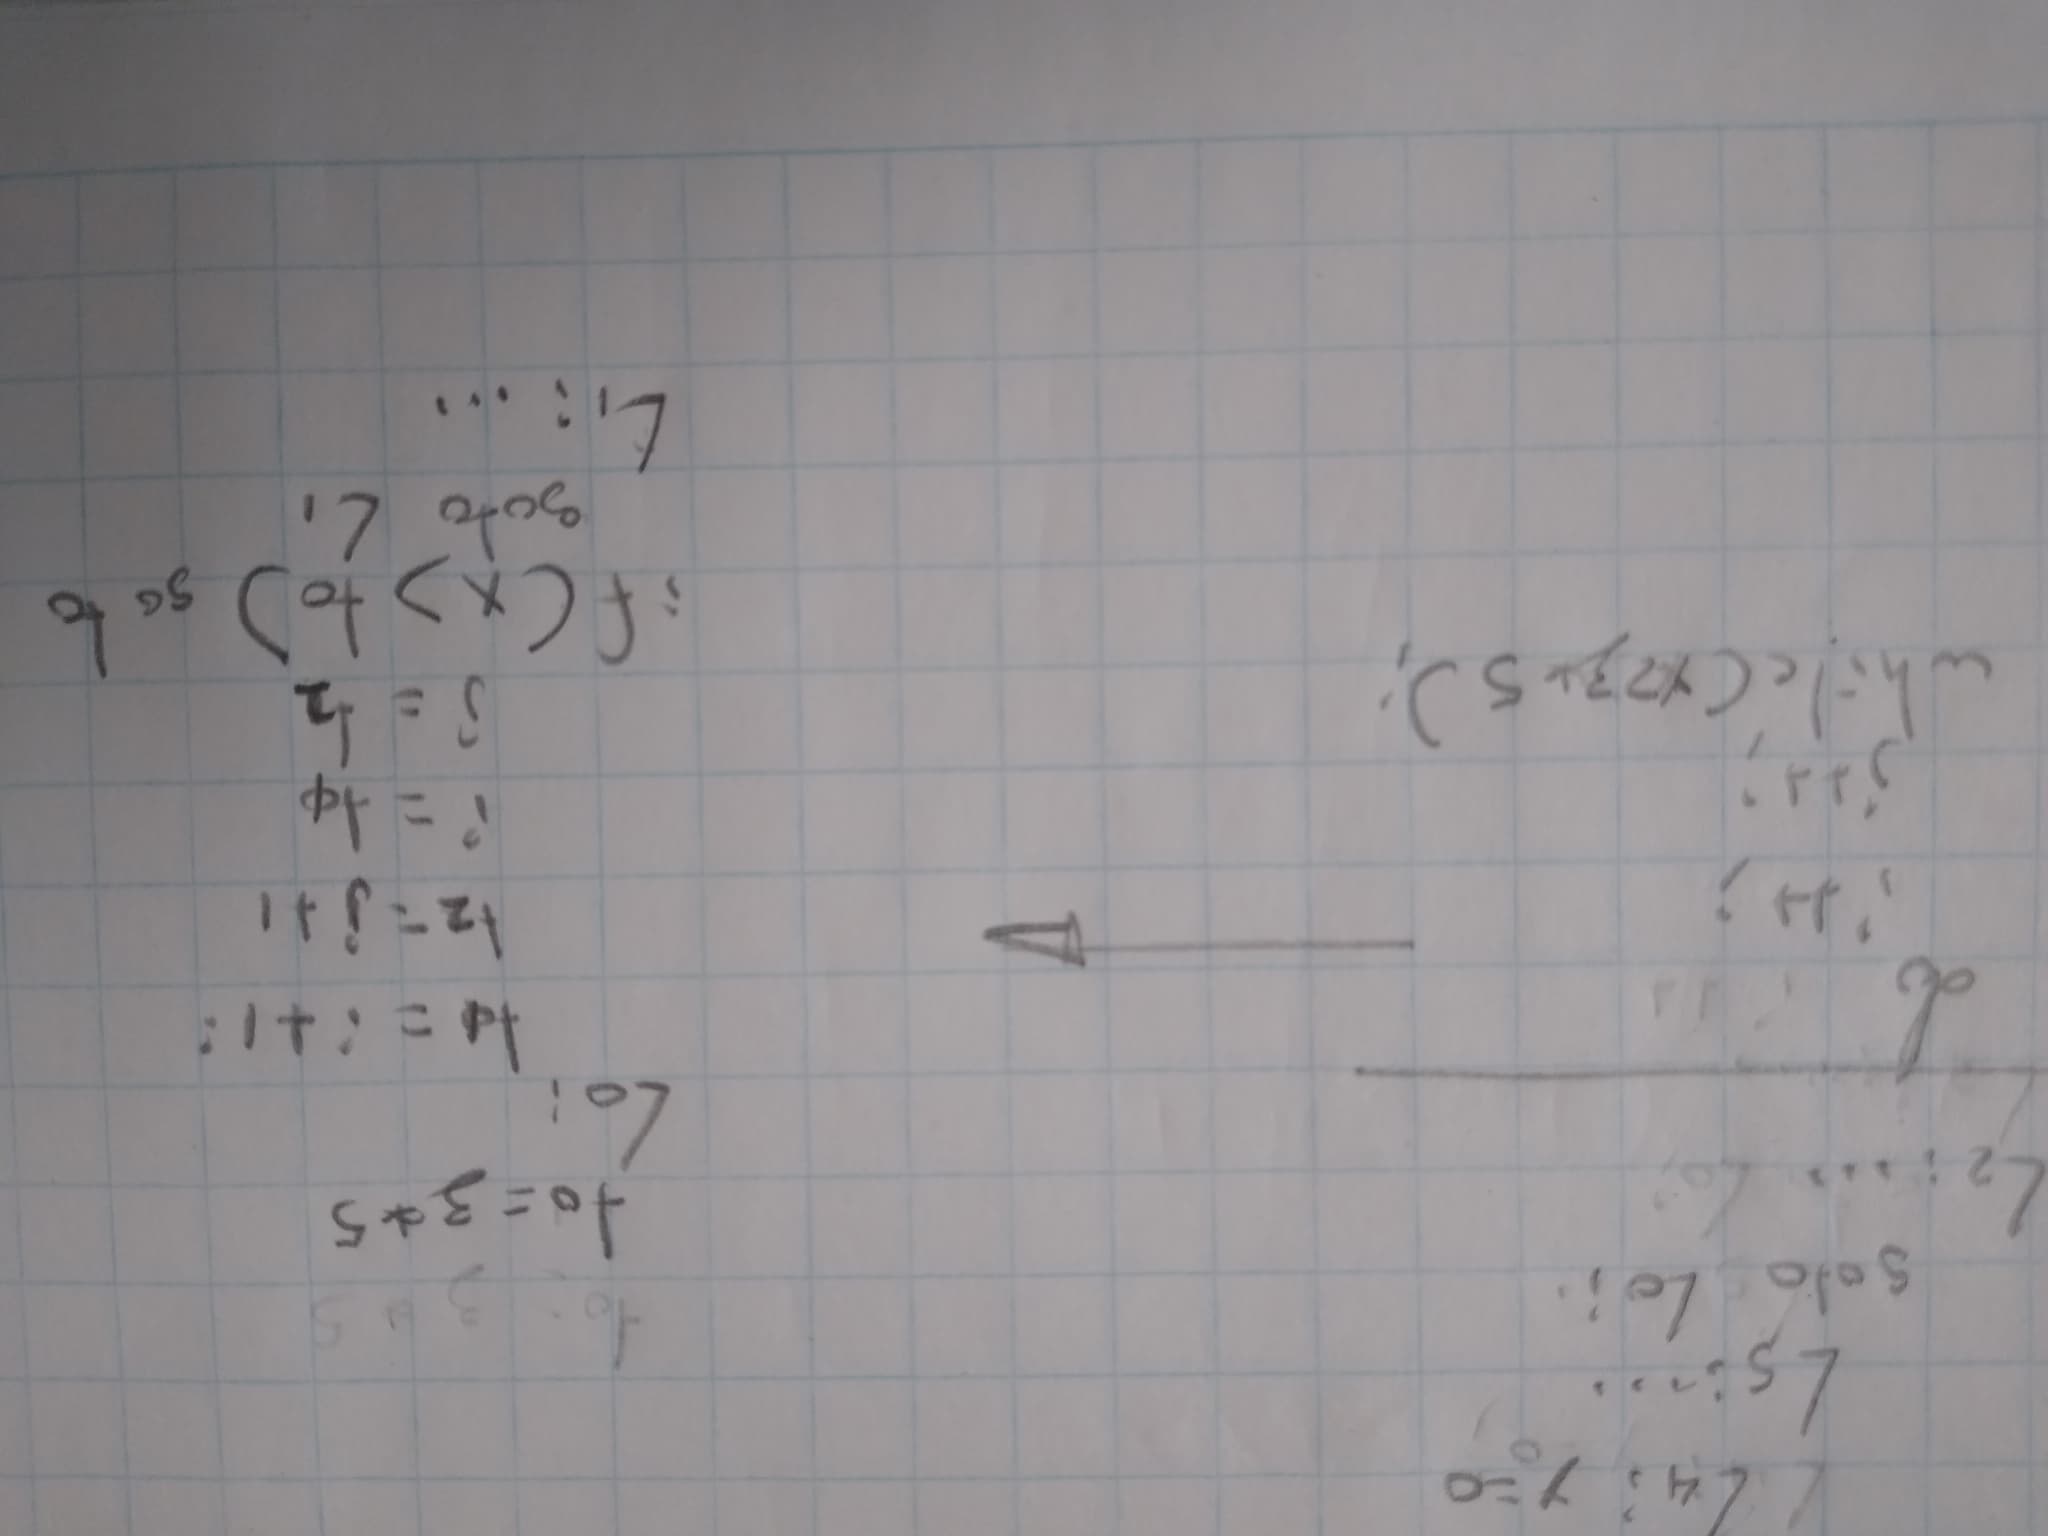 L4: y=0
L5: ...
goto L0:
L2: ...
do
i++;
j++;
while(x>3*5);
t0=3*5
L0:
t1=i+1:
t2=j+1
i=t1
j=t2
if(x>t0) goto
goto L1
L1: ...